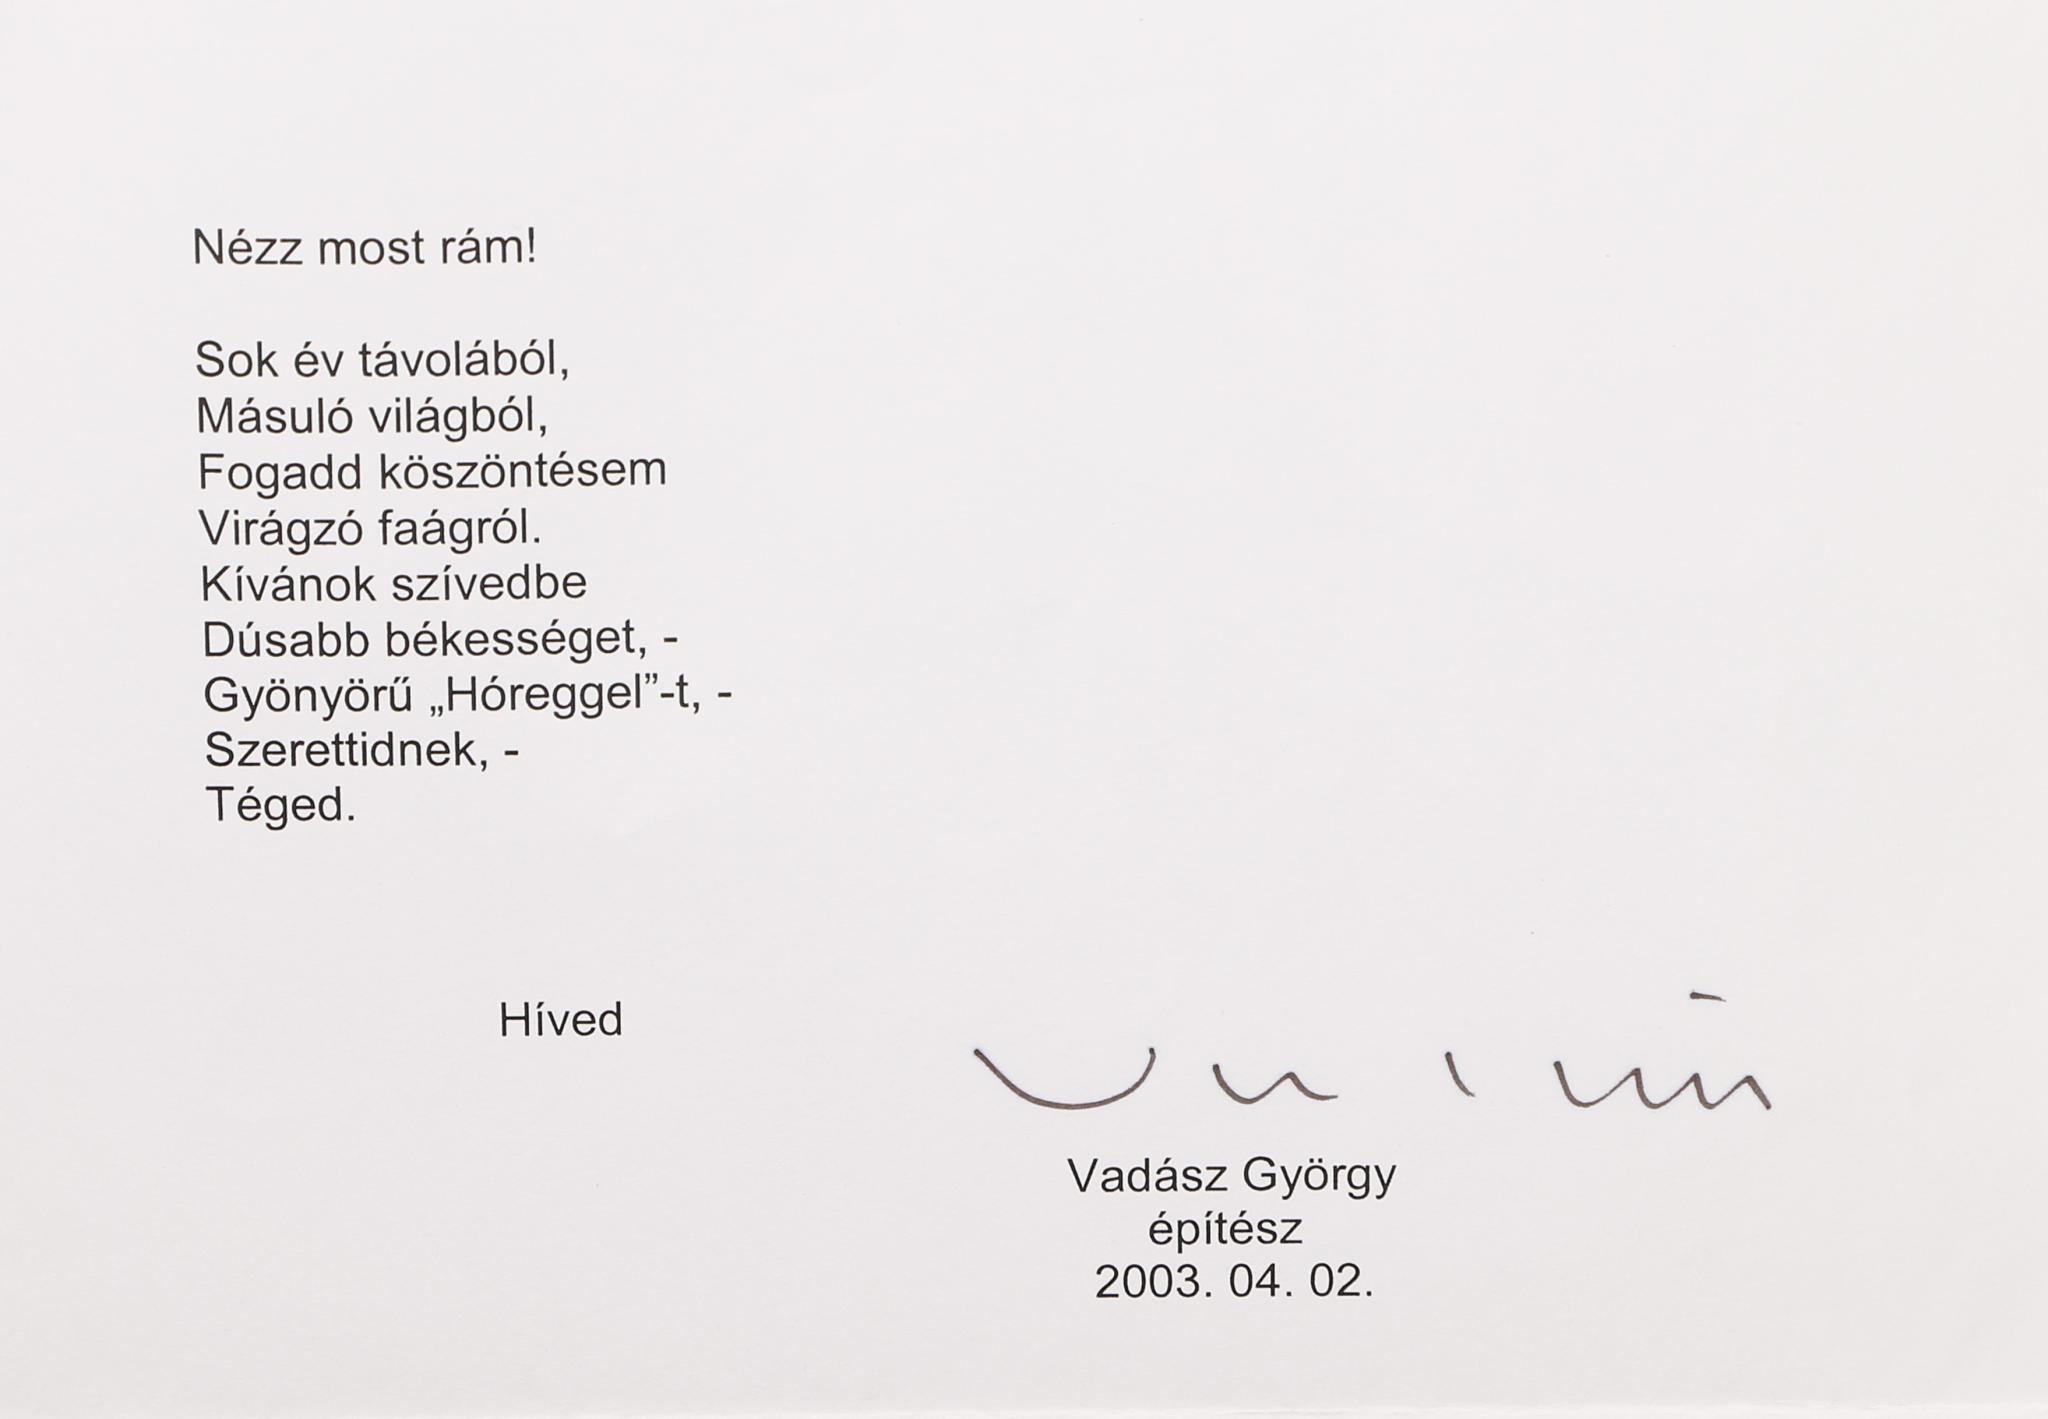 Nézz most rám!
Sok év távolából,
Másuló világból,
Fogadd köszöntésem
Virágzó faágról.
Kívánok szívedbe
Dúsabb békességet, -
Gyönyörű „Hóreggel”-t, -
Szerettidnek, -
Téged.
Híved
Vadász György
építész
2003. 04. 02.